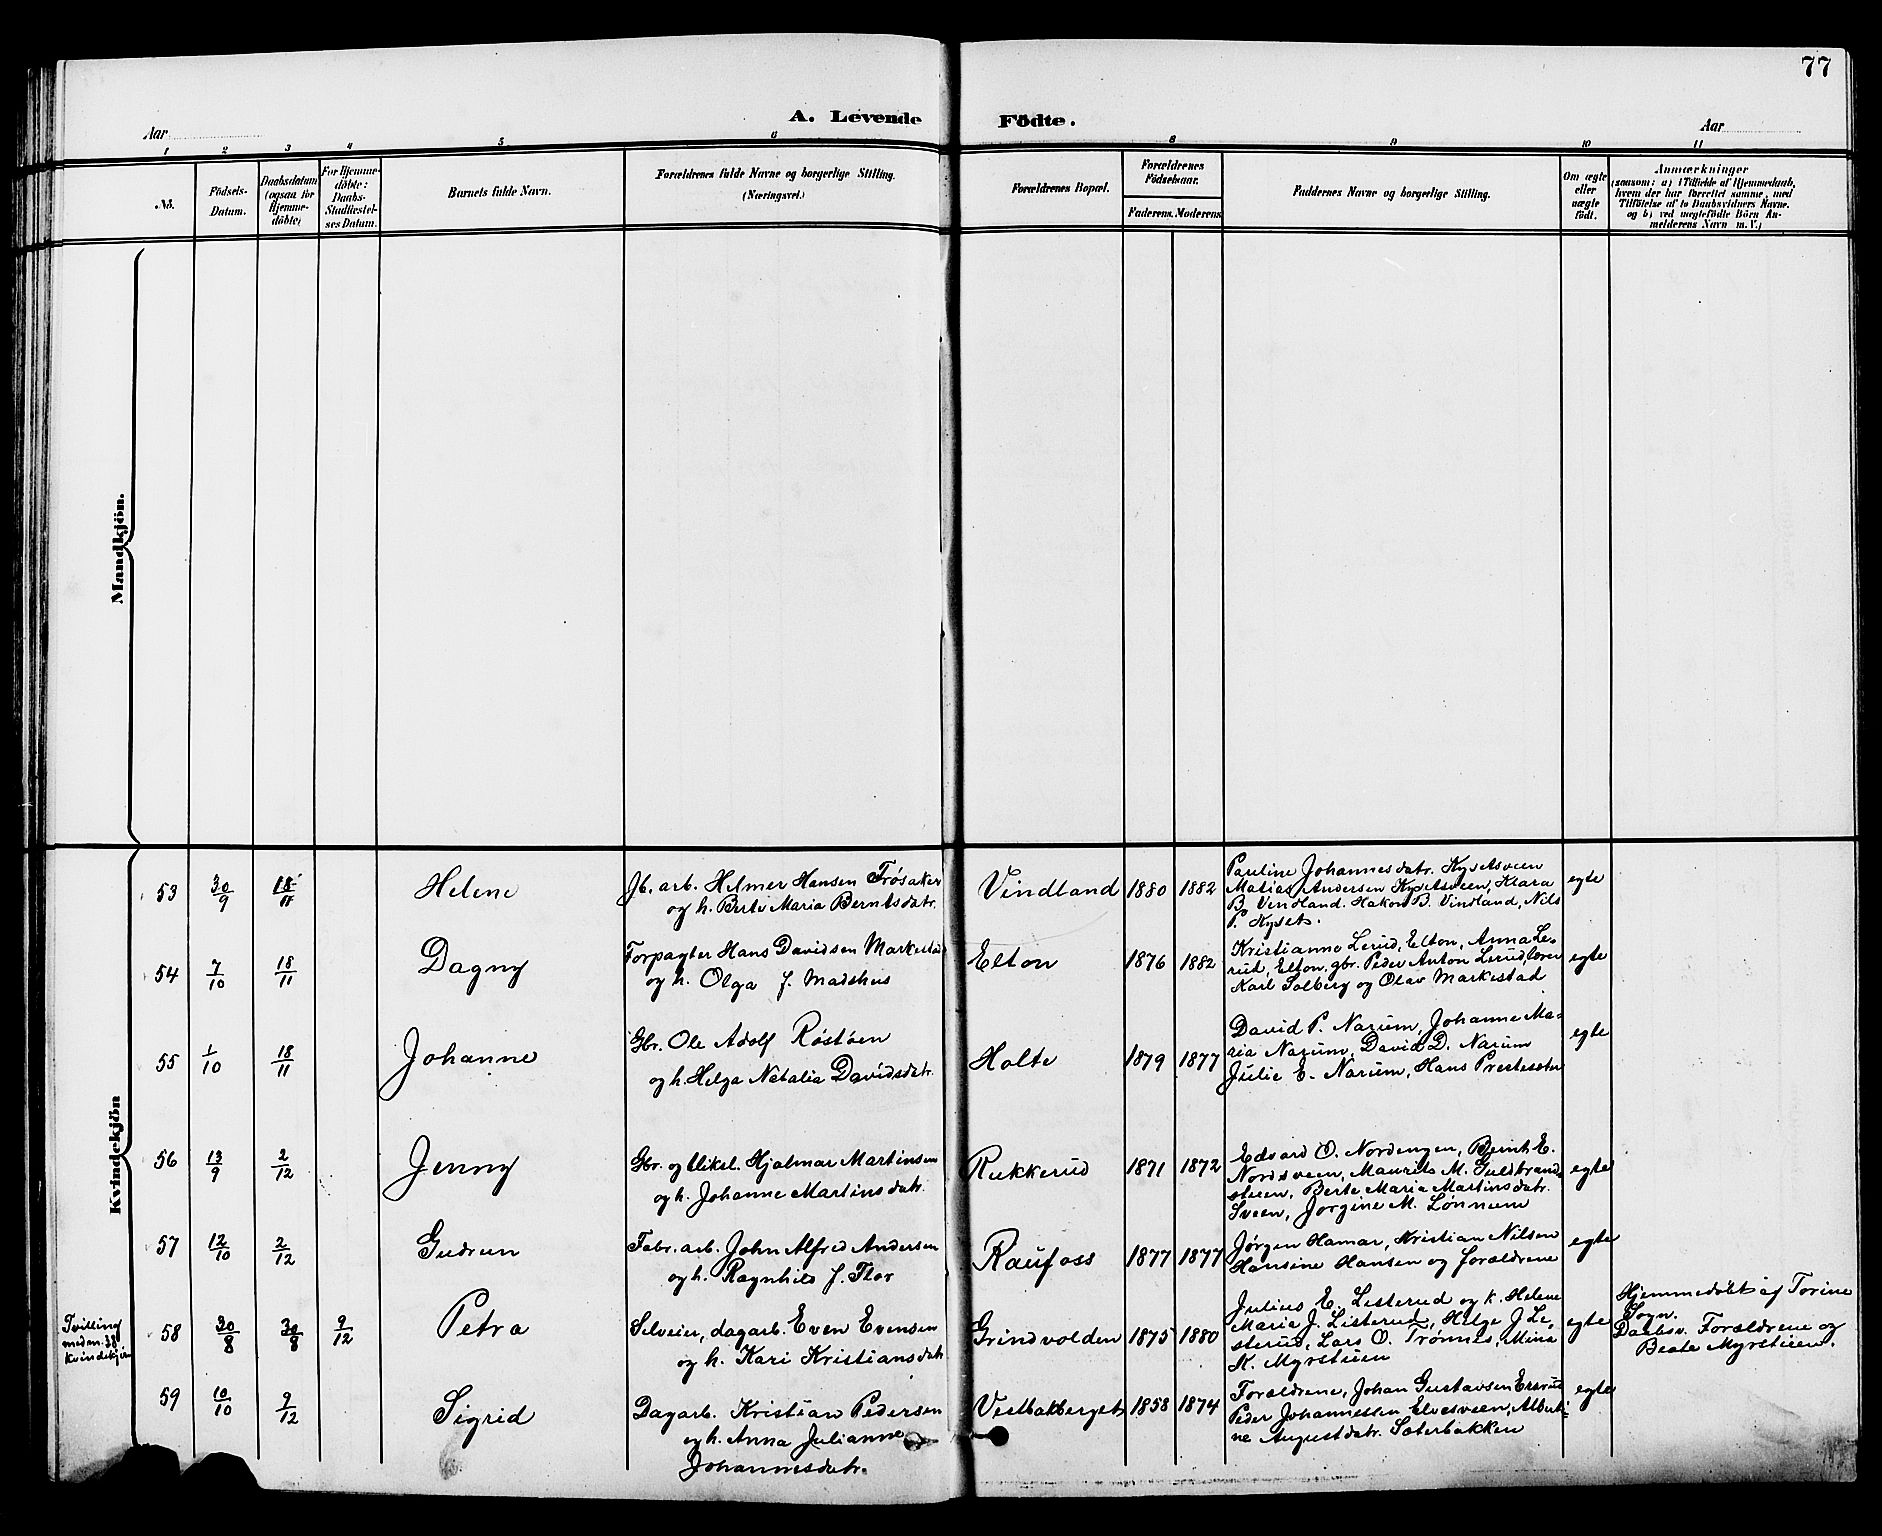 77
A. Levende Födte.
Aar
Aar
1 2 3 4 5 6 8 9 10 11
No.
Födsels-
Datum.
Daabsdatum
(ogsaa for
Hjemme-
döbte)
For Hjemme-
döbte:
Daabs-
Stadfæstel-
ses Datum.
Barnets fulde Navn.
Forældrenes fulde Navne og borgerlige Stilling.
(Næringsvei.)
Forældrenes Bopæl.
Forældrenes
Födselsaar.
Faderens. Moderens
Faddernes Navne og borgerlige Stilling.
Om ægte
eller
uægte
födt.
Anmærkninger
(saasom: a) i Tilfælde af Hjemmedaab,
hvem der har forrettet samme, med
Tilföielse af to Daabsvidners Navne.
og b) ved uægtefödte Börn An-
melderens Navn m. V.)
Mandkjön.
Kvindekjön
53 30/9 18/11 Helene
Jb. arb. Helmer Hansen Frösaker
og h. Berte Maria Berntsdatr.
Vindland 1880 1882
Pauline Johannesdatr. Kysetsveen
Matias Andersen Kysetsveen, Klara
B. Vindland. Hakon B. Vindland, Nils
P. Kyset.
egte
54 7/10 18/11 Dagny
Forpagter Hans Davidsen Markestad
og h. Olga f. Madshus
Elton 1876 1882
Kristianne Lerud, Elton, Anna Le-
rud, Elton, gbr. Peder Anton Lerud, lærer
Karl Solberg og Olav Markestad
egte
55 1/10 18/11 Johanne
Gbr. Ole Adolf Röstöen
og h. Helga Natalia Davidsdatr.
Holte 1879 1877
David P. Narum, Johanne Ma-
ria Narum, David D. Narum
Julie E. Narum, Hans Prestesæter
egte
56 13/9 2/12 Jenny
Gbr. og Hjalmar Martinsen
og h. Johanne Martinsdatr.
Rukkerud 1871 1872
Edvard O. Nordengen, Bernt E.
Nordsveen, Maurits M. Guldbrand-
stuen, Berte Maria Martinsdatr.
Sveen, Jörgine M. Lönnum
egte
57 12/10 2/12 Gudrun
Fabr. arb. John Alfred Andersen
og h. Ragnhild f. Flor
Raufoss 1877 1877
Jörgen Hamar, Kristian Nilsen
Hansine Hansen og forældrene
egte
Tvilling
med n. 38
kvindekjön
58 30/8 30/8 9/12 Petra
Selveier, dagarb. Even Evensen
og h. Kari Kristiansdatr
Grindvolden 1875 1880
Julius E. Listerud og k. Helene
Maria J. Listerud, Helge J Le-
sterud, Lars O. Trönnes, Mina
K. Myrstuen
egte
Hjemmedöbt af Torine
Sogn.
Daabsv. Forældrene og
Beate Myrstuen.
59 10/10 9/12 Sigrid
Dagarb. Kristian Pedersen
og h. Anna Julianne
Johannesdatr.
Vestbakberget 1858 1874
Forældrene, Johan Gustavsen
Peder Johannessen Elvesveen, Alberti-
ne Augustdatr. Sæterbakken
egte